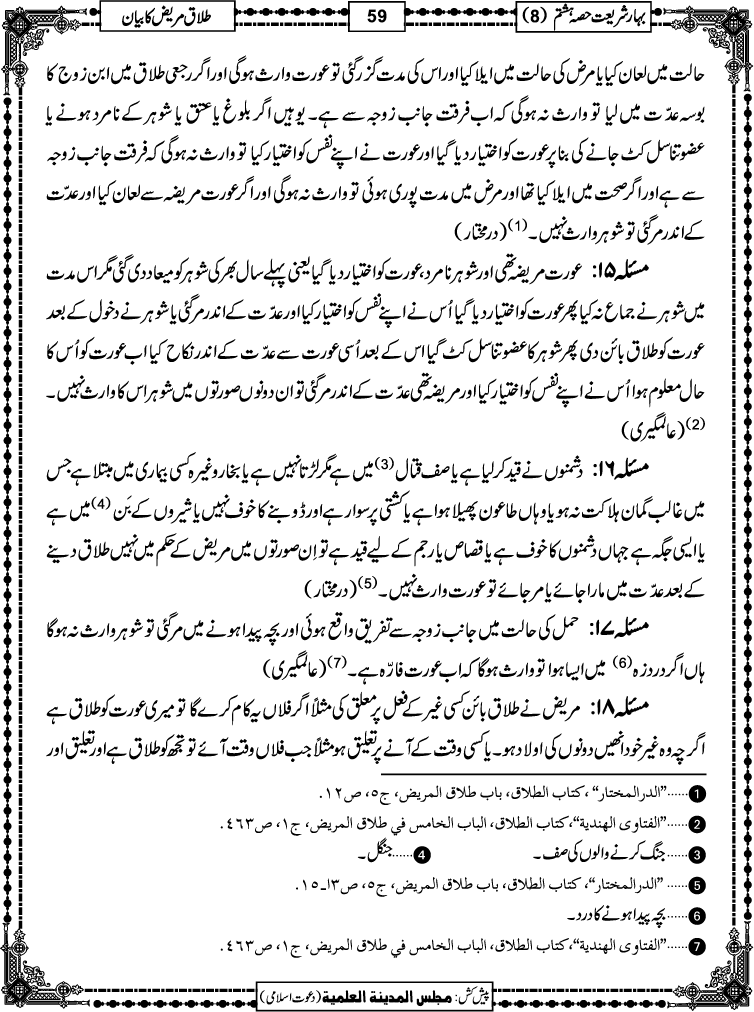 بہارِ شریعت حصہ ہشتم (8)
59
طلاق مریض کا بیان
حالت میں لعان کیا یا مرض کی حالت میں ایلا کیا اور اس کی مدت گزر گئی تو عورت وارث ہوگی اور اگر رجعی طلاق میں ابن زوج کا
بوسہ عدّت میں لیا تو وارث نہ ہوگی کہ اب فرقت جانب زوجہ سے ہے۔ یوہیں اگر بلوغ یا عتق یا شوہر کے نامرد ہونے یا
عضو تناسل کٹ جانے کی بنا پر عورت کو اختیار دیا گیا اور عورت نے اپنے نفس کو اختیار کیا تو وارث نہ ہوگی کہ فرقت جانب زوجہ
سے ہے اور اگر صحت میں ایلا کیا تھا اور مرض میں مدت پوری ہوئی تو وارث نہ ہوگی اور اگر عورت مریضہ سے لعان کیا اور عدّت
کے اندر مر گئی تو شوہر وارث نہیں۔(1) (درمختار)
مسئلہ ۱۵: عورت مریضہ تھی اور شوہر نامرد، عورت کو اختیار دیا گیا یعنی پہلے سال بھر کی شوہر کو میعاد دی گئی مگر اس مدت
میں شوہر نے جماع نہ کیا پھر عورت کو اختیار دیا گیا اُس نے اپنے نفس کو اختیار کیا اور عدّت کے اندر مر گئی یا شوہر نے دخول کے بعد
عورت کو طلاق بائن دی پھر شوہر کا عضو تناسل کٹ گیا اس کے بعد اُسی عورت سے عدّت کے اندر نکاح کیا اب عورت کو اُس کا
حال معلوم ہوا اُس نے اپنے نفس کو اختیار کیا اور مریضہ تھی عدّت کے اندر مر گئی تو ان دونوں صورتوں میں شوہر اس کا وارث نہیں۔
(2) (عالمگیری)
مسئلہ ۱۶: دشمنوں نے قید کر لیا ہے یا صف قتال(3) میں ہے مگر لڑتا نہیں ہے یا بخار وغیرہ کسی بیماری میں مبتلا ہے جس
میں غالب گمان ہلاکت نہ ہو یا وہاں طاعون پھیلا ہوا ہے یا کشتی پر سوار ہے اور ڈوبنے کا خوف نہیں یا شیروں کے بَن(4) میں ہے
یا ایسی جگہ ہے جہاں دشمنوں کا خوف ہے یا قصاص یا رجم کے لیے قید ہے تو اِن صورتوں میں مریض کے حکم میں نہیں طلاق دینے
کے بعد عدّت میں مارا جائے یا مر جائے تو عورت وارث نہیں۔(5) (درمختار)
مسئلہ ۱۷: حمل کی حالت میں جانب زوجہ سے تفریق واقع ہوئی اور بچہ پیدا ہونے میں مر گئی تو شوہر وارث نہ ہوگا
ہاں اگر دردزہ(6) میں ایسا ہوا تو وارث ہوگا کہ اب عورت فارّہ ہے۔(7) (عالمگیری)
مسئلہ ۱۸: مریض نے طلاق بائن کسی غیر کے فعل پر معلق کی مثلاً اگر فلاں یہ کام کرے گا تو میری عورت کو طلاق ہے
اگرچہ وہ غیر خود انھیں دونوں کی اولاد ہو۔ یا کسی وقت کے آنے پر تعلیق ہو مثلاً جب فلاں وقت آئے تو تجھ کو طلاق ہے اور تعلیق اور
1......"الدرالمختار"، کتاب الطلاق، باب طلاق المریض، ج۵، ص۱۲.
2......"الفتاوی الھندیة"، کتاب الطلاق، الباب الخامس في طلاق المریض، ج۱، ص۴۶۳.
3......جنگ کرنے والوں کی صف۔ 4......جنگل۔
5......"الدرالمختار"، کتاب الطلاق، باب طلاق المریض، ج۵، ص۱۳۔۱۵.
6......بچہ پیدا ہونے کا درد۔
7......"الفتاوی الھندیة"، کتاب الطلاق، الباب الخامس في طلاق المریض، ج۱، ص۴۶۳.
پیش کش: مجلس المدینة العلمیة (دعوت اسلامی)